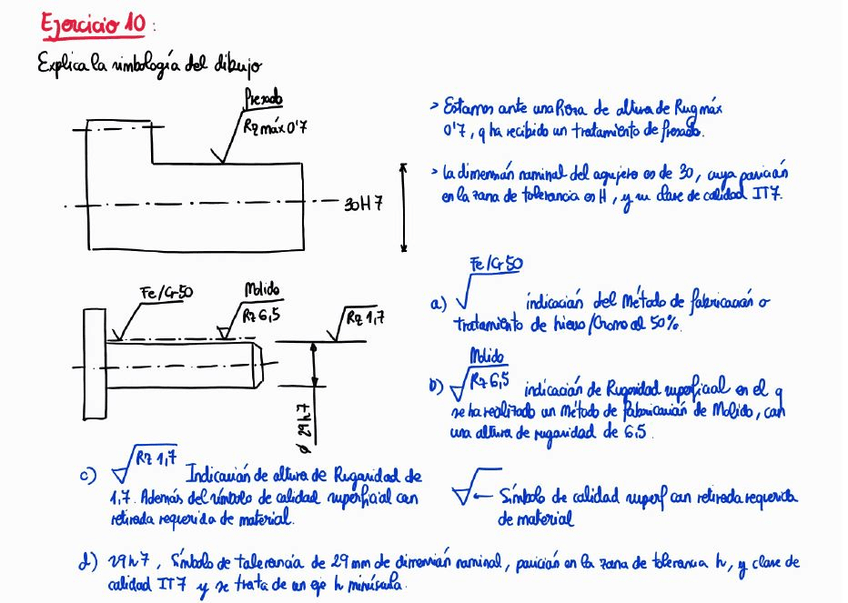 Ejercicio 10:
Explica la simbología del dibujo
Fresado
Rz máx 0'7
30H7
> Estamos ante una Pieza de altura de Rug máx
0'7, q ha recibido un tratamiento de fresado.
> La dimensión nominal del agujero es de 30, cuya posición
en la zona de tolerancia es H, y su clase de calidad IT7.
Fe/Cr50
Molido
Rz 6,5
Rz 1,7
ø 29h7
Fe/Cr50
a) indicación del Método de fabricación o
tratamiento de hierro/Cromo al 50%.
Molido
b) Rz 6,5 indicación de Rugosidad superficial en el q
se ha realizado un Método de fabricación de Molido, con
una altura de rugosidad de 6,5.
c) Rz 1,7 Indicación de altura de Rugosidad de
1,7. Además del símbolo de calidad superficial con
retirada requerida de material.
← Símbolo de calidad superf con retirada requerida
de material
d) 29h7, Símbolo de tolerancia de 29mm de dimensión nominal, posición en la zona de tolerancia h, y clase de
calidad IT7 y se trata de un eje h minúscula.